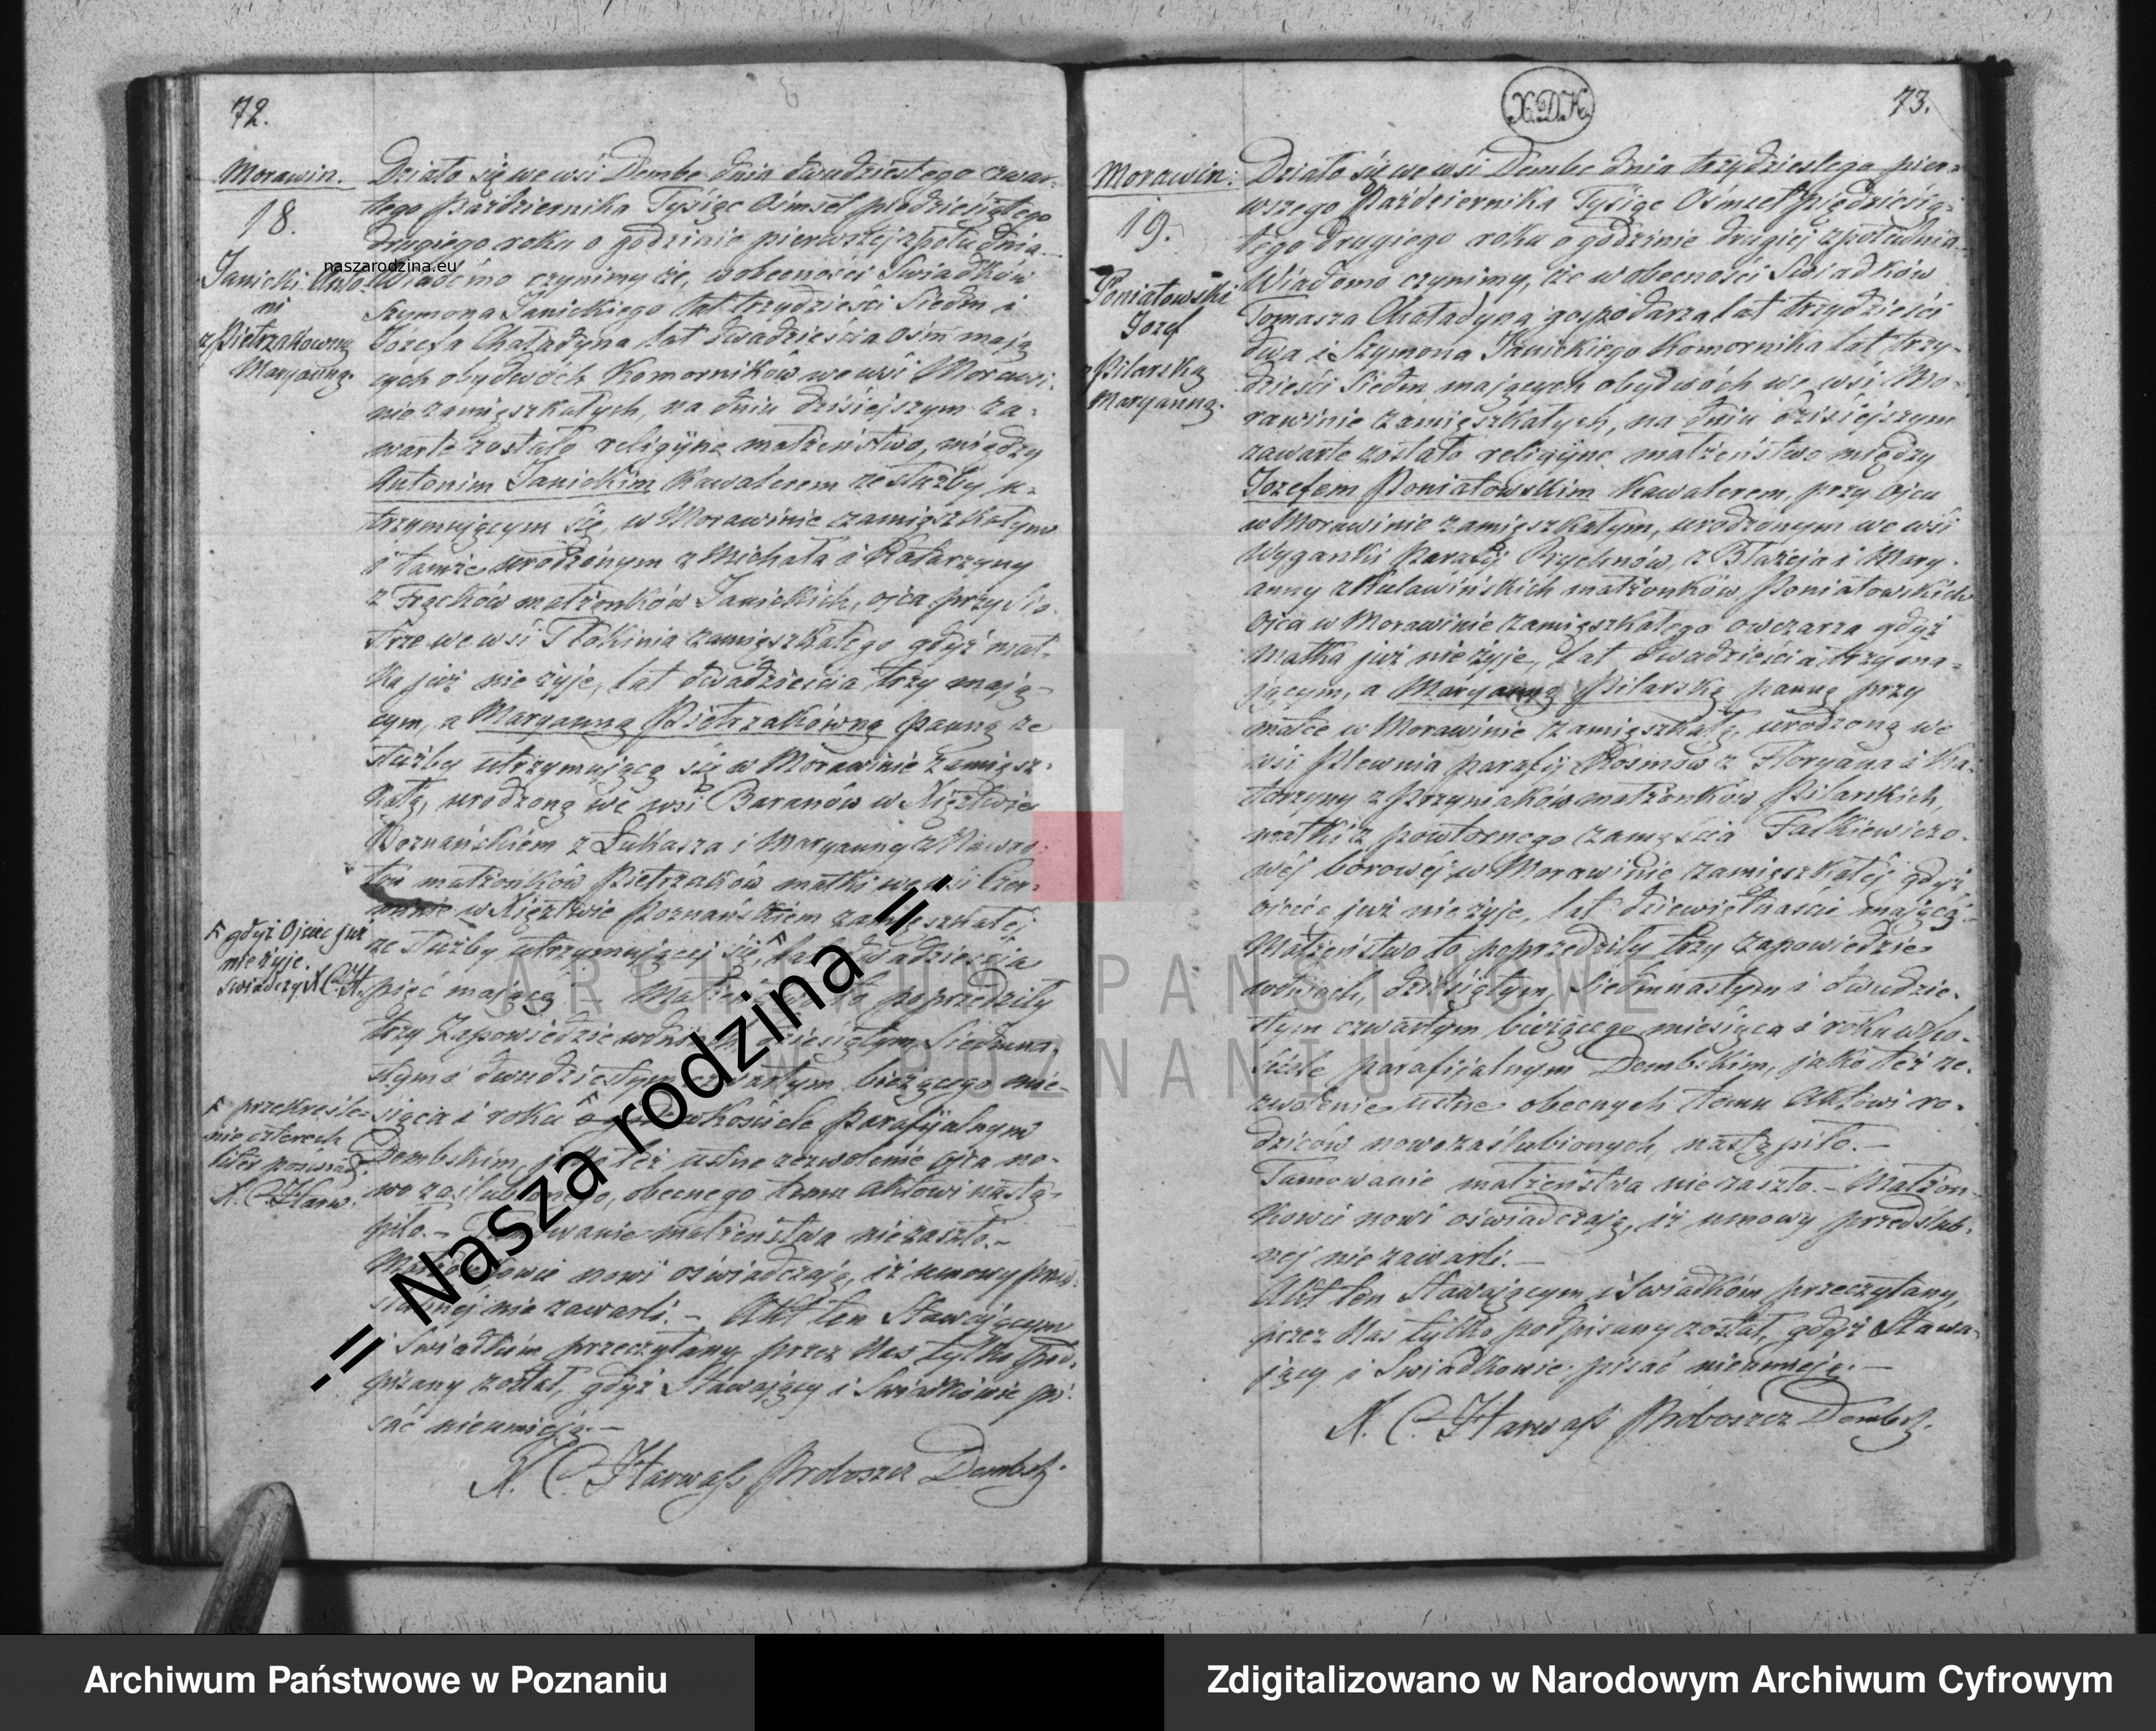 72.
Morawin.
18.
Janicki Anto-
ni
z Pietrzakowną
Maryanną.
Działo się we wsi Dembe dnia dwudziestego czwar-
tego Października Tysiąc Ośmset pięćdziesiątego
drugiego roku o godzinie pierwszej z południa.
Wiadomo czynimy że, w obecności Swiadków
Szymona Janickiego lat trzydzieści siedm i
Józefa Chaładyna lat dwadzieścia ośm mają
cych obydwóch Komorników we wsi Morawi-
nie zamięszkałych, na dniu dzisiejszym za-
warte zostało religijne małżeństwo, między
Antonim Janickim Kawalerem ze służby u-
trzymującym się, w Morawinie zamięszkałym
i tamże urodzonym z Michała i Katarzyny
z Frącków małżonków Janickich, ojca przy sio-
strze we wsi Tłokinia zamięszkałego gdyż mat-
ka już nie żyje, lat dwadzieścia trzy mają-
cym, a Maryanną Pietrzakówną panną ze
służby utrzymującą się w Morawinie zamięsz-
kałą, urodzoną we wsi Baranów w Xięztwie
Poznańskiem z Łukasza i Maryanny z Nawro-
tów małżonków Pietrzaków matki we wsi
w Xięztwie Poznańskiem zamięszkałej
ze służby utrzymującej się, lat dwadzieścia
pięć mającą – Małżeństwo to poprzedziły
trzy Zapowiedzie w dniach dziesiątym Siedmna-
stym i dwudziestym czwartym bieżącego mie-
siąca i roku w kościele parafijalnym
Dembskim, jako też ustne zezwolenie ojca no-
wo zaślubionego, obecnego temu aktowi nastą-
piło. – Tamowanie małżeństwa nie zaszło. –
Małżonkowie nowi oświadczają, iż umowy przed-
ślubnej nie zawarli. – Akt ten Stawającym
i Swiadkom przeczytany przez Nas tylko pod-
pisany został, gdyż Stawający i Swiadkowie pi-
sać nieumieją. –
X. C. Harwass Proboszcz Dembsk.
gdyż Ojciec już
nie żyje.
świadczy X.C.H.
przekreśle-
nie czterech
liter poświad.
X. C. Harw.
X.D.K.
73.
Morawin.
19.
Poniatowski
Jozef
z Pilarską
Maryanną.
Działo się we wsi Dembe dnia trzydziestego pier-
wszego Października Tysiąc Ośmset pięćdziesią-
tego drugiego roku o godzinie drugiej z południa
Wiadomo czynimy, że w obecności Swiadków
Tomasza Chaładyna gospodarza lat trzydzieści
dwa i Szymona Janickiego Komornika lat trzy-
dzieści siedm mających obydwóch we wsi Mo-
rawinie zamięszkałych, na dniu dzisiejszym
zawarte zostało religijne małżeństwo między
Jozefem Poniatowskim Kawalerem, przy ojcu
w Morawinie zamięszkałym, urodzonym we wsi
Wyganki Parafij Rychnów, z Błażeja i Mary-
anny z Kuławińskich małżonków Poniatowskich
Ojca w Morawinie zamięszkałego owczarza gdyż
matka już nie żyje, lat dwadzieścia trzy ma-
jącym, a Maryanną Pilarską panną przy
matce w Morawinie zamięszkałą, urodzoną we
wsi Plewnia parafij Kosmów z Floryana i Ka-
tarzyny z Przyniaków małżonków Pilarskich,
matki z powtórnego zamęścia Falkiewiczo-
wéj borowéj w Morawinie zamięszkałéj gdyż
ojciec już nie żyje, lat dziewiętnaście mającą. –
Małżeństwo to poprzedziły trzy zapowiedzie
w dniach, dziesiątym, siedmnastym i dwudzie-
stym czwartym bieżącego miesiąca i roku w ko-
ściele parafijalnym Dembskim, jako też ze-
zwolenie ustne obecnych temu Aktowi ro-
dziców nowozaślubionych, nastąpiło. –
Tamowanie małżeństwa nie zaszło. – Małżon-
kowie nowi oświadczają, iż umowy przedślub-
nej nie zawarli. –
Akt ten Stawającym i Swiadkom przeczytany,
przez Nas tylko podpisany został, gdyż Stawa-
jący i Swiadkowie pisać nieumieją. –
X. C. Harwass Proboszcz Dembsk.
naszarodzina.eu
-= Nasza rodzina =-
ARCHIWUM PAŃSTWOWE
W POZNANIU
Archiwum Państwowe w Poznaniu
Zdigitalizowano w Narodowym Archiwum Cyfrowym